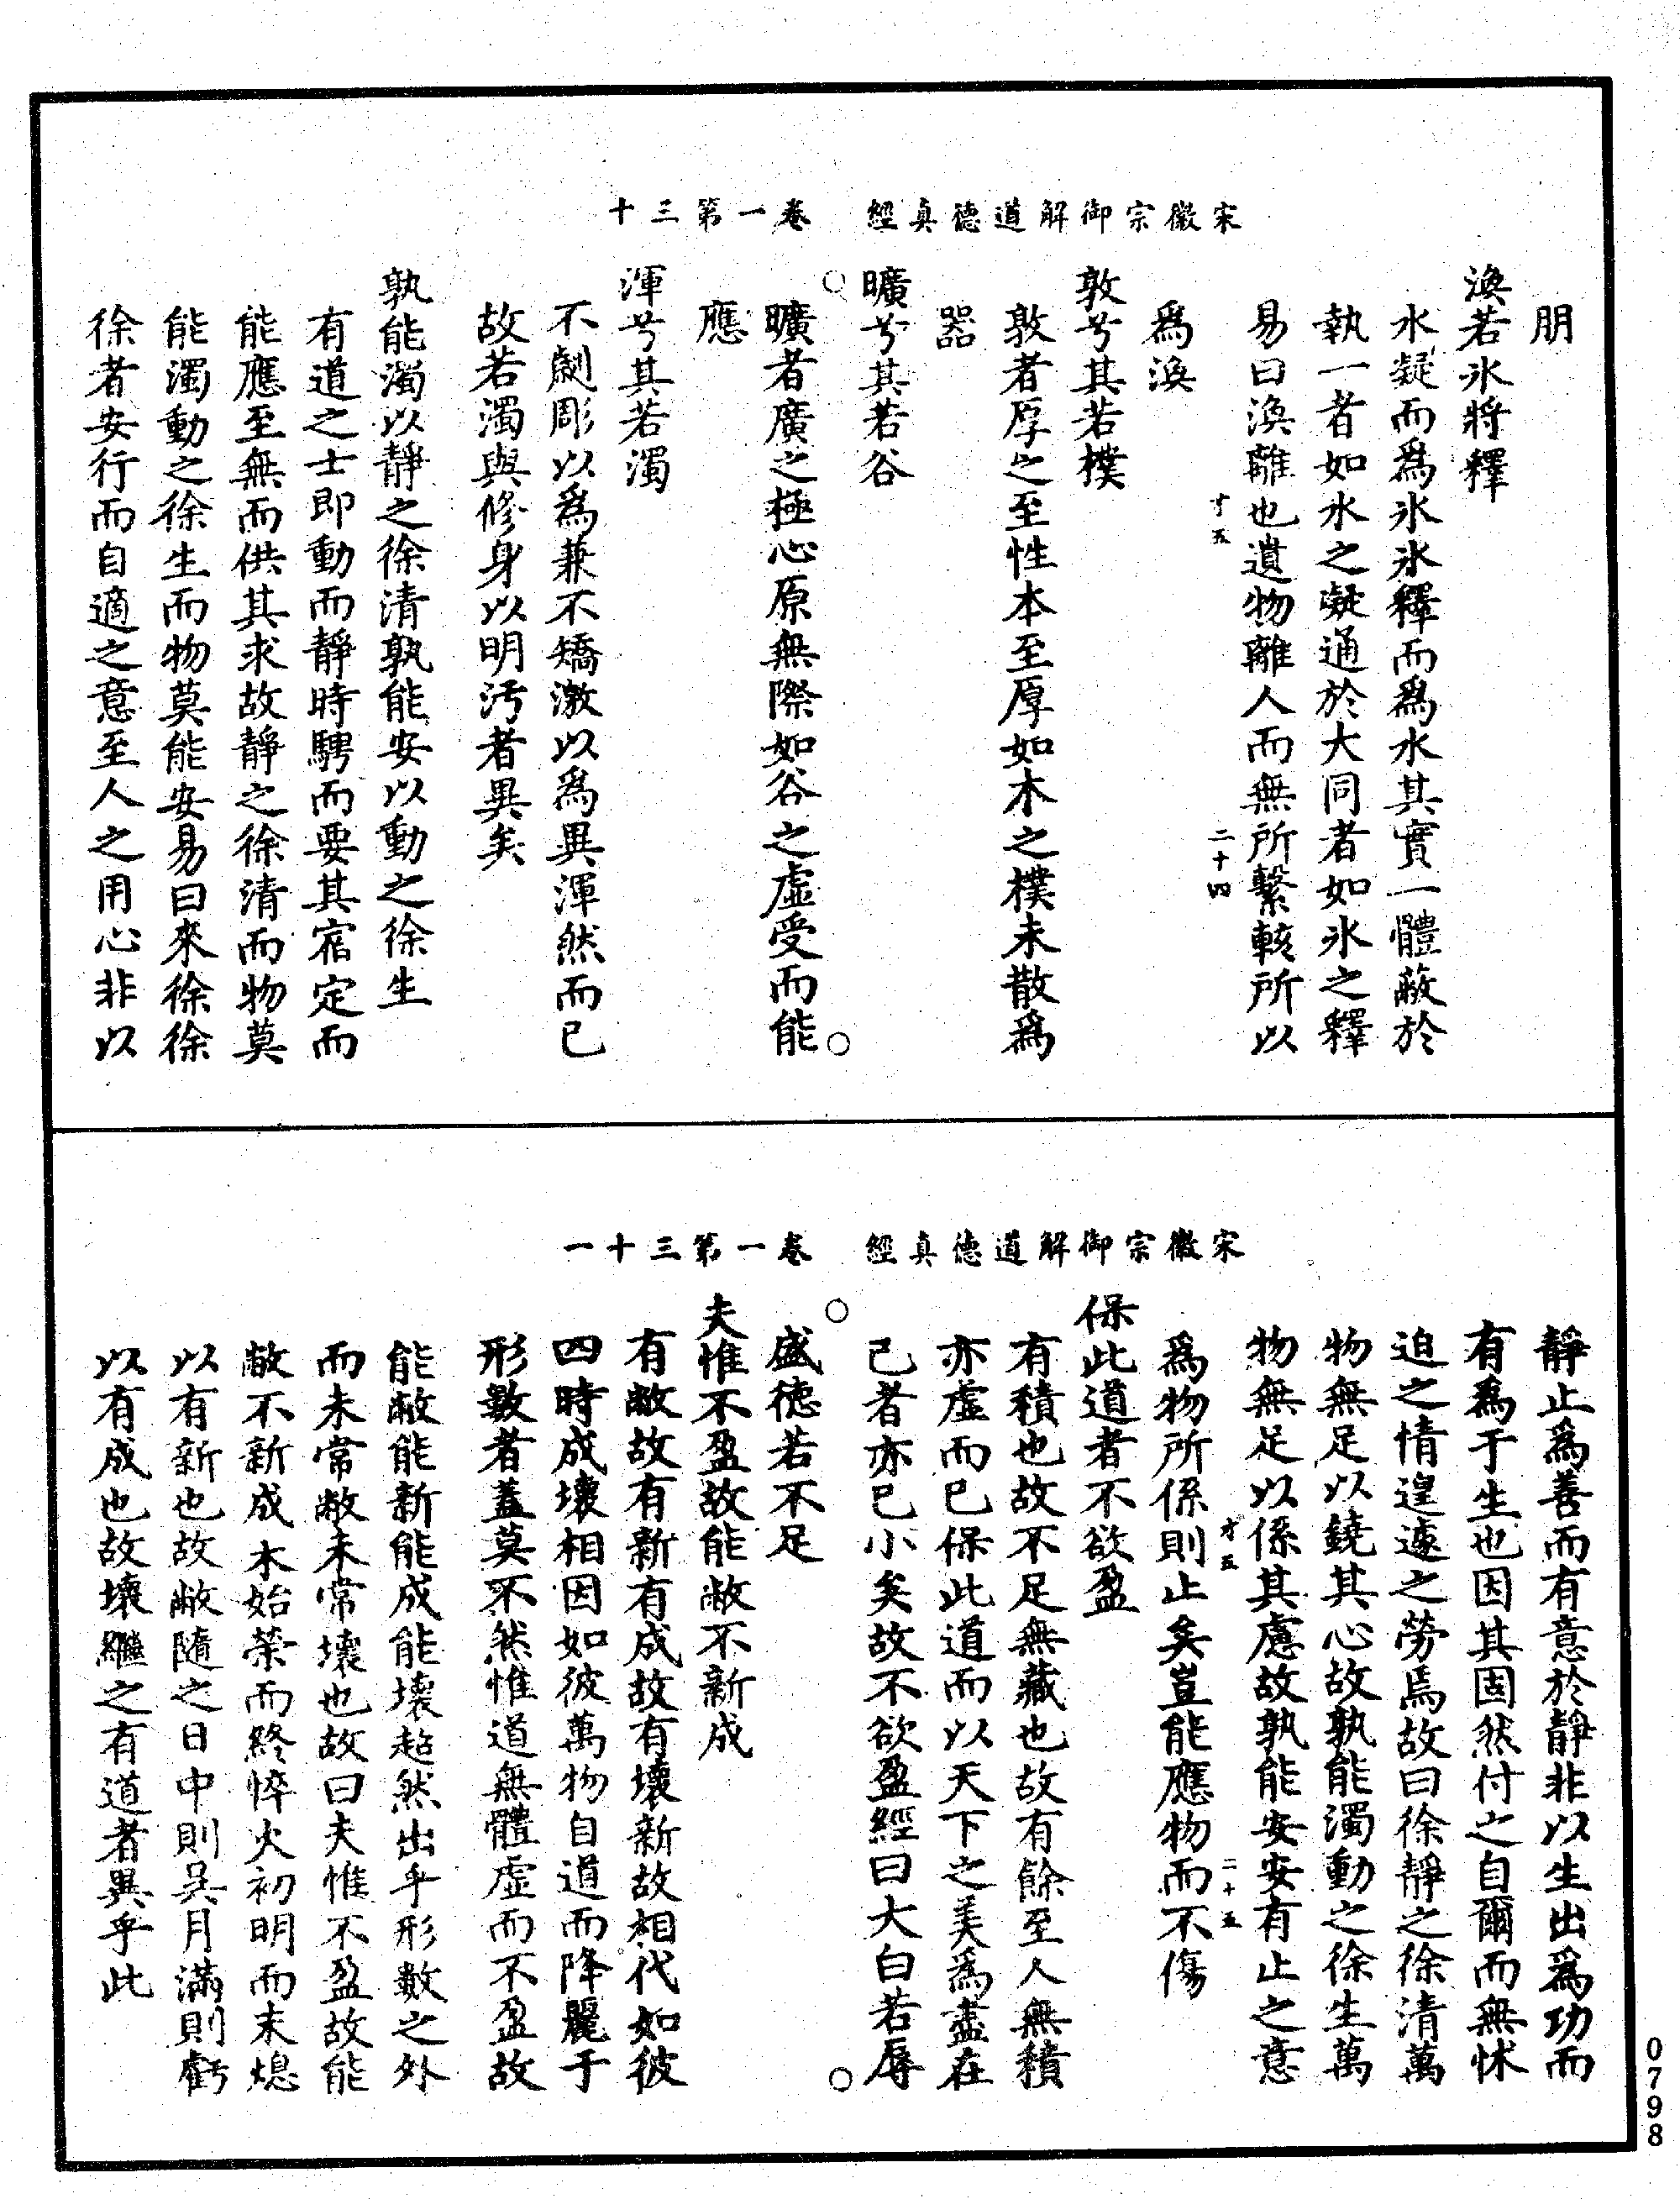 宋徽宗御解道德真經　卷一第三十
朋
渙若氷將釋
水凝而爲氷氷釋而爲水其實一體蔽於
執一者如水之凝通於大同者如氷之釋
易曰渙離也遺物離人而無所繫輆所以
才五
二十四
爲渙
敦兮其若樸
敦者厚之至性本至厚如木之樸未散爲
器
曠兮其若谷
曠者廣之極心原無際如谷之虛受而能
應
渾兮其若濁
不劌彫以爲兼不矯激以爲異渾然而已
故若濁與修身以明汚者異矣
孰能濁以靜之徐清孰能安以動之徐生
有道之士即動而靜時騁而要其宿定而
能應至無而供其求故靜之徐清而物莫
能濁動之徐生而物莫能安易曰來徐徐
徐者安行而自適之意至人之用心非以
宋徽宗御解道德真經　卷一第三十一
靜止爲善而有意於靜非以生出爲功而
有爲于生也因其固然付之自爾而無怵
迫之情遑遽之勞焉故曰徐靜之徐清萬
物無足以鐃其心故孰能濁動之徐生萬
物無足以係其慮故孰能安安有止之意
才五
二十五
爲物所係則止矣豈能應物而不傷
保此道者不欲盈
有積也故不足無藏也故有餘至人無積
亦虛而已保此道而以天下之美爲盡在
己者亦已小矣故不欲盈經曰大白若辱
盛德若不足
夫惟不盈故能敝不新成
有敝故有新有成故有壞新故相代如彼
四時成壞相因如彼萬物自道而降麗于
形數者蓋莫不然惟道無體虛而不盈故
能敝能新能成能壞超然出乎形數之外
而未常敝未常壞也故曰夫惟不盈故能
敝不新成木始榮而終悴火初明而末熄
以有新也故敝隨之日中則昃月滿則虧
以有成也故壞繼之有道者異乎此
0798